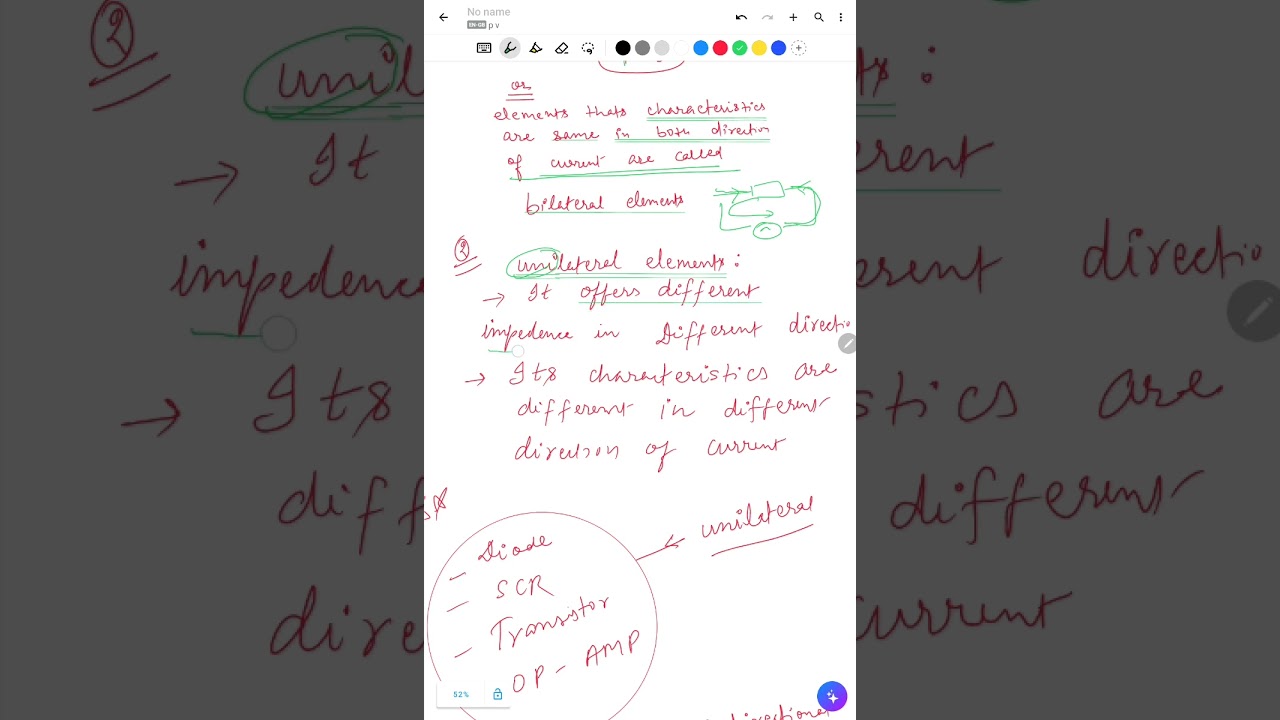 No name
EN-GB p v
or
elements thats characteristics
are same in both direction
of current are called
bilateral elements
② unilateral elements:
→ It offers different
impedence in Different directio
→ Its characteristics are
different in different
direction of current
← unilateral
- Diode
- SCR
- Transistor
OP - AMP
52%
directional